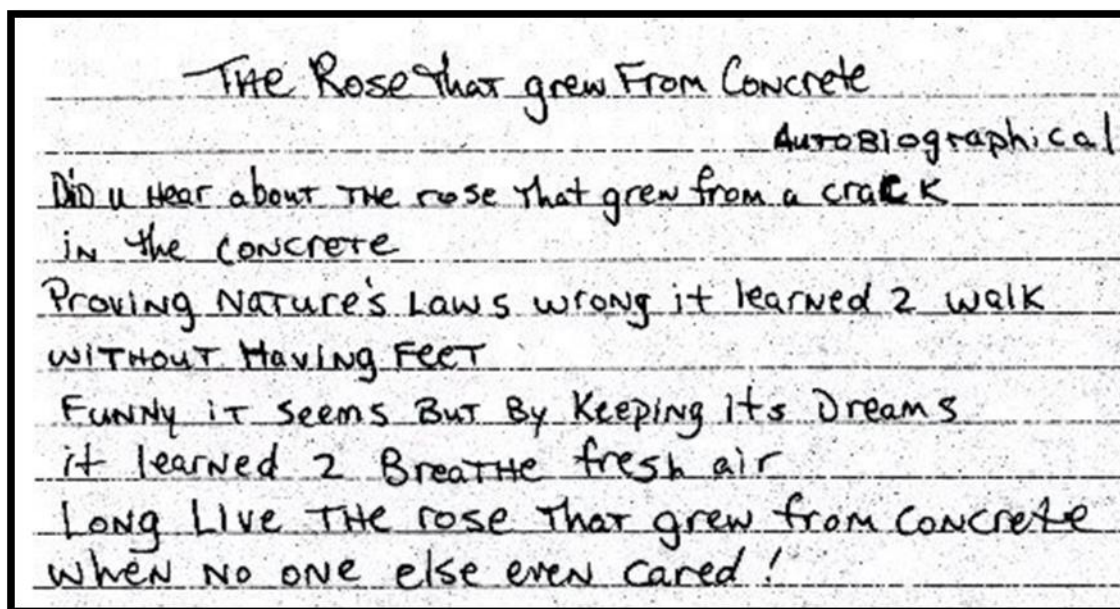 THe Rose That grew From Concrete
Autobiographical
Did u Hear about THe rose That grew from a crack
in the concrete
Proving Nature's Laws wrong it learned 2 walk
without Having Feet
Funny it seems But By Keeping its Dreams
it learned 2 Breathe fresh air
Long Live THe rose That grew from concrete
when no one else even cared!